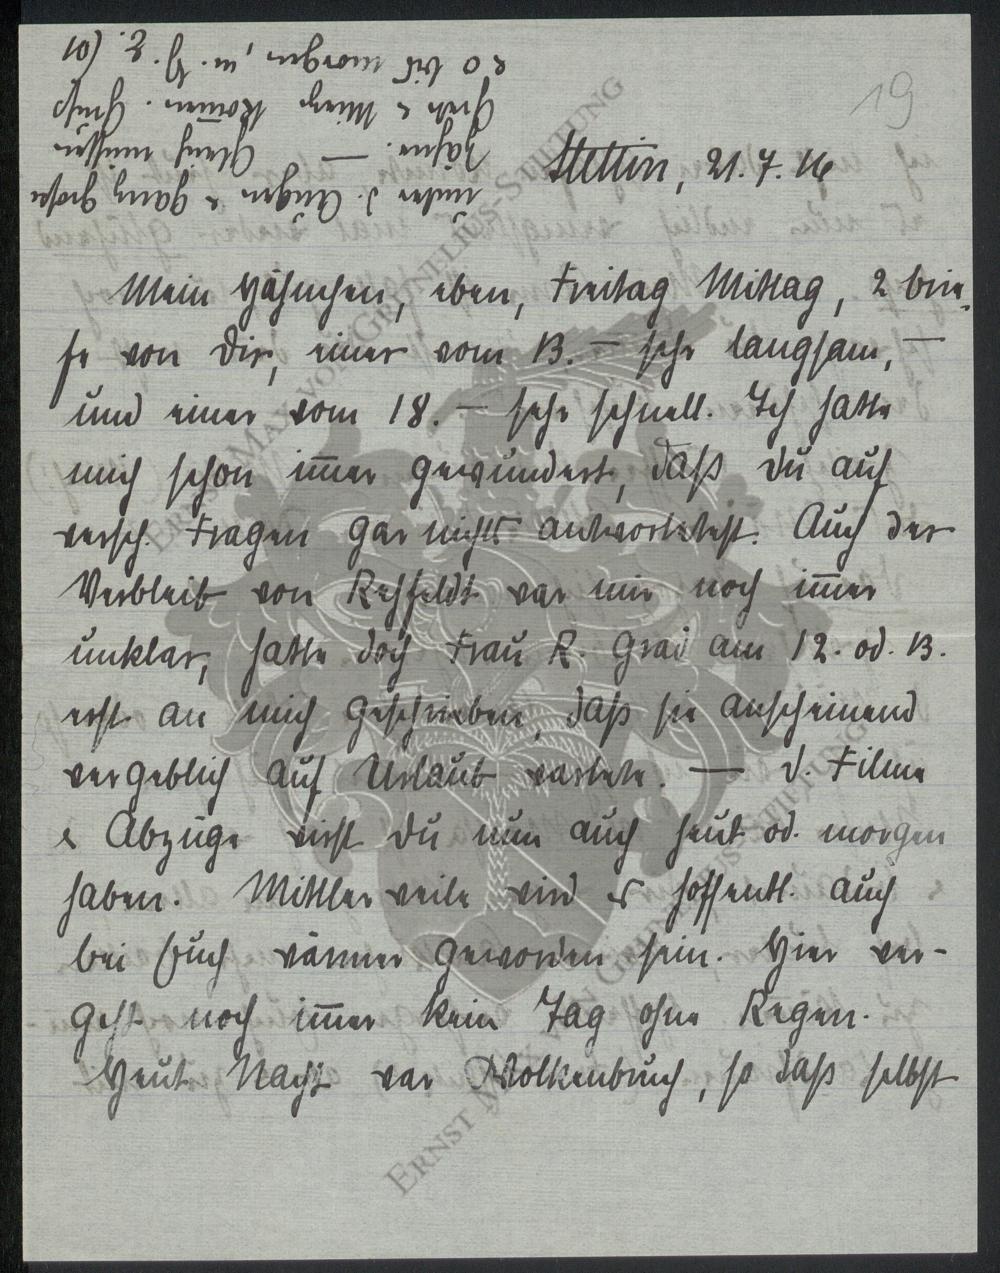 19
Stettin, 21.7.16
Mein Hähnchen, eben, Freitag Mittag, 2 brie-
fe von Dir, einer vom 13. – sehr langsam, –
und einer vom 18. – sehr schnell. Ich hatte
mich schon im̅er gewundert, daß Du auf
versch. Fragen gar nichts antwortetest. Auch der
Verbleib von Rehfeldt war mir noch im̅er
unklar, hatte doch Frau R. grad am 12. od. 13.
erst an mich geschrieben, daß sie anscheinend
vergeblich auf Urlaub wartete. — d. Filme
& Abzüge wirst Du nun auch heut od. morgen
haben. Mittlerweile wird es hoffentl. auch
bei Euch wärmer geworden sein. Hier ver-
geht noch im̅er kein Tag ohne Regen.
Heut Nacht war Wolkenbruch, so daß selbst
unter d. Augen & ganz große
Zähne. — Gleich müssen
Grete & Mieze kom̅en. Gruß
& so bis morgen, m. H. E.
ERNST MAX VON GRUNELIUS-STIFTUNG
ERNST MAX VON GRUNELIUS-STIFTUNG